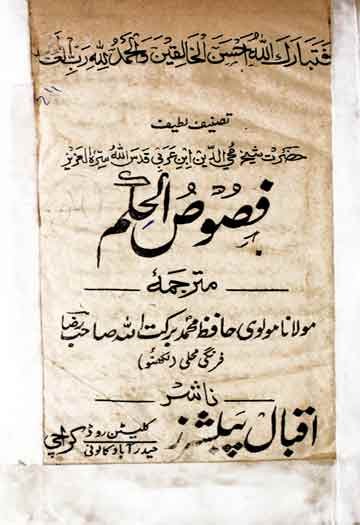 فتبارك الله احسن الخالقين والحمد لله رب
تصنیف لطیف
حضرت شیخ محی الدین ابن عربی قدس اللہ سرہ العزیز
فصوص الحکم
مترجمہ
مولانا مولوی حافظ محمد برکت اللہ صاحب رضا
فرنگی محلی (لکھنؤ)
ناشر
اقبال پبلشرز کلیٹن روڈ حیدرآباد کالونی کراچی